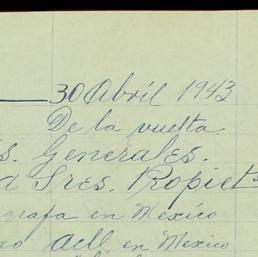 30 Abril 1943
De la vuelta.
s. Generales.
d Sres. Propiets
grafa en Mexíco
xo acll en Mexíco